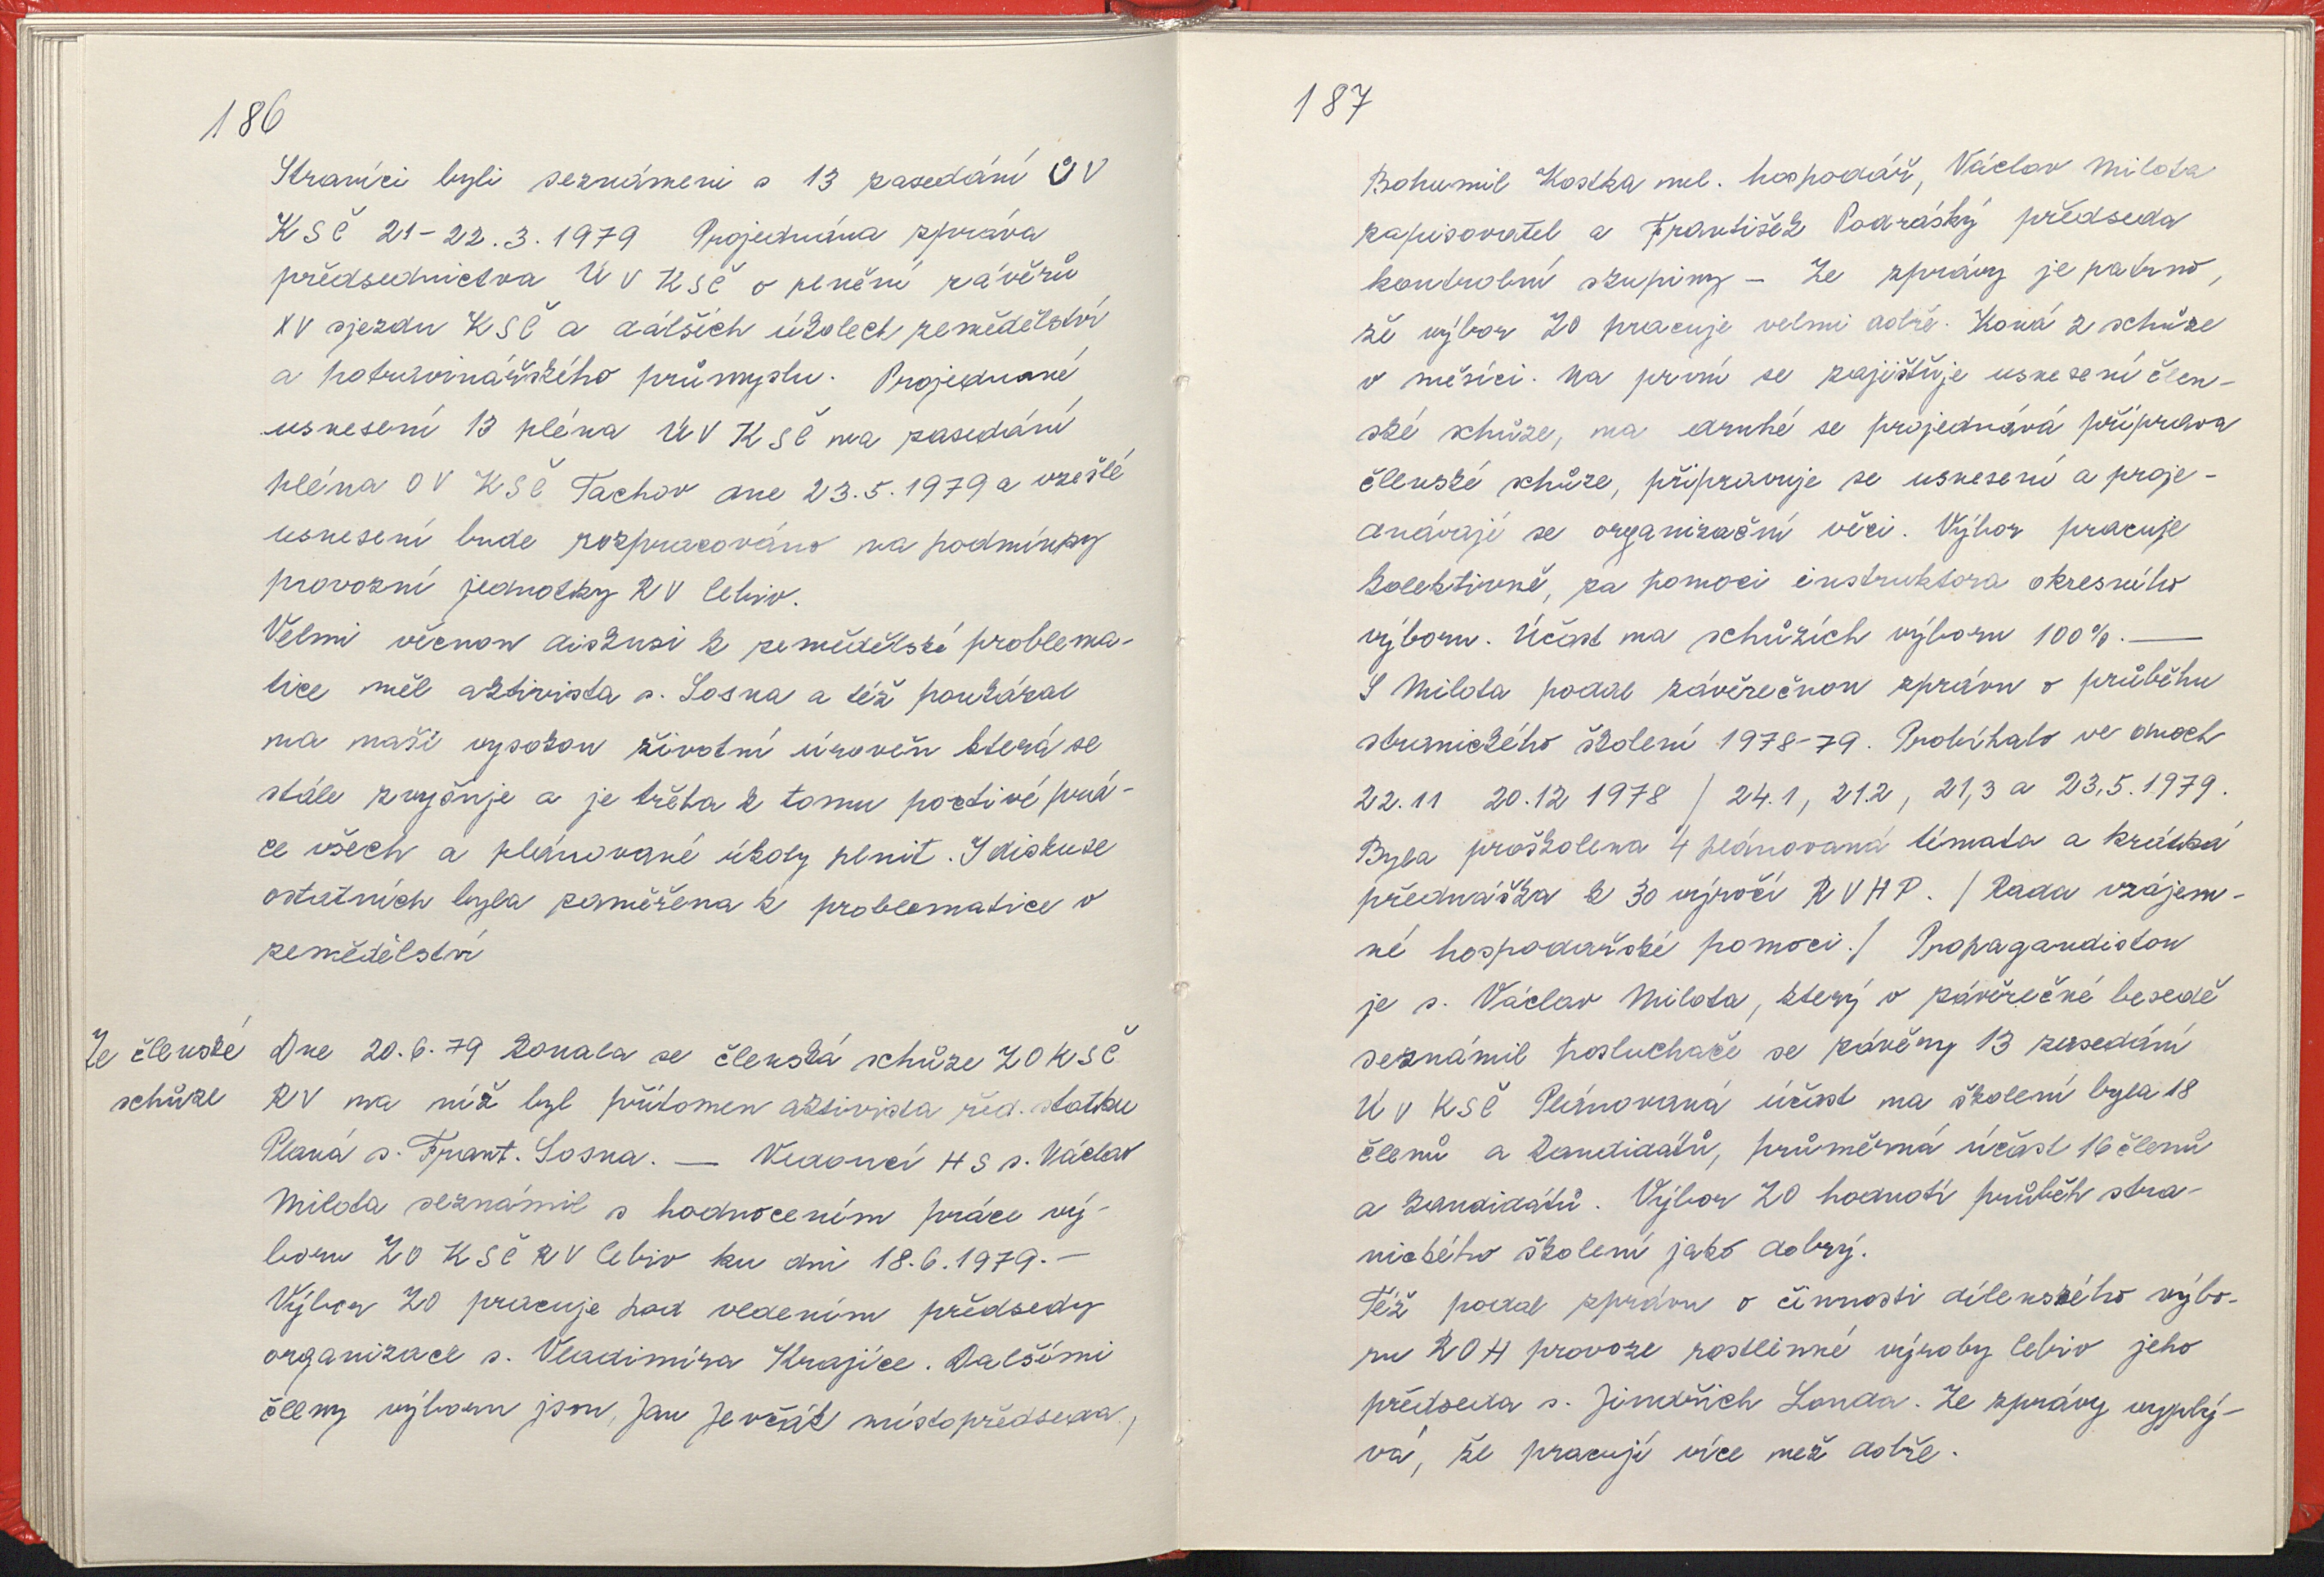 186
Straníci byli seznámeni s 13 zasedání ÚV
KSČ 21-22.3.1979 Projednána zpráva
předsednictva ÚV KSČ o plnění závěrů
XV sjezdu KSČ a dálších úkolech zemědělství
a potravinářského průmyslu. Projednané
usnesení 13 pléna ÚV KSČ na zasedání
pléna OV KSČ Tachov dne 23.5.1979 a vzešlé
usnesení bude rozpracováno na podmínky
provozní jednotky RV Cebiv.
Velmi věcnou diskusi k zemědělské problema-
tice měl aktivista s. Sosna a též poukázal
na naší vysokou životní úroveň která se
stále zvyšuje a je třeba k tomu poctivé prá-
ce všech a plánované úkoly plnit. I diskuse
ostatních byla zaměřena k problematice v
zemědělství
Ze členské
schůze
Dne 20.6.79 konala se členská schůze ZO KSČ
RV na níž byl přítomen aktivista řed. statku
Planá s. Frant. Sosna. — Vedoucí HS s. Václav
Milota seznámil s hodnocením práce vý-
boru ZO KSČ RV Cebiv ku dni 18.6.1979. —
Výbor ZO pracuje pod vedením předsedy
organizace s. Vladimíra Krajíce. Dalšími
členy výboru jsou, Jan Jevčák místopředseda,
187
Bohumil Kostka nel. hospodář, Václav Milota
zapisovatel a František Podráský předseda
kontrolní skupiny — Ze zprávy je patrno,
že výbor ZO pracuje velmi dobře. Koná 2 schůze
v měsíci. Na první se zajišťuje usnesení člen-
ské schůze, na druhé se projednává příprava
členské schůze, připravuje se usnesení a proje-
dnávají se organizační věci. Výbor pracuje
kolektivně, za pomoci instruktora okresního
výboru. Účast na schůzích výboru 100%. —
S Milota podal závěrečnou zprávu o průběhu
stranického školení 1978-79. Probíhalo ve dnech
22.11 20.12 1978 / 24.1, 21.2, 21,3 a 23,5.1979.
Byla proškolena 4 plánovaná témata a krátká
přednáška k 30 výročí RVHP. / Rada vzájem-
né hospodařské pomoci. / Propagandistou
je s. Václav Milota, který v závěrečné besedě
seznámil posluchače se závěry 13 zasedání
ÚV KSČ Plánovaná účast na školení byla 18
členů a kandidátů, průměrná účast 16 členů
a kandidátů. Výbor ZO hodnotí průběh stra-
nického školení jako dobrý.
Též podal zprávu o činnosti dílenského výbo-
ru ROH provoze rostlinné výroby Cebiv jeho
předseda s. Jindřich Londa. Ze zprávy vyplý-
vá, že pracují více než dobře.